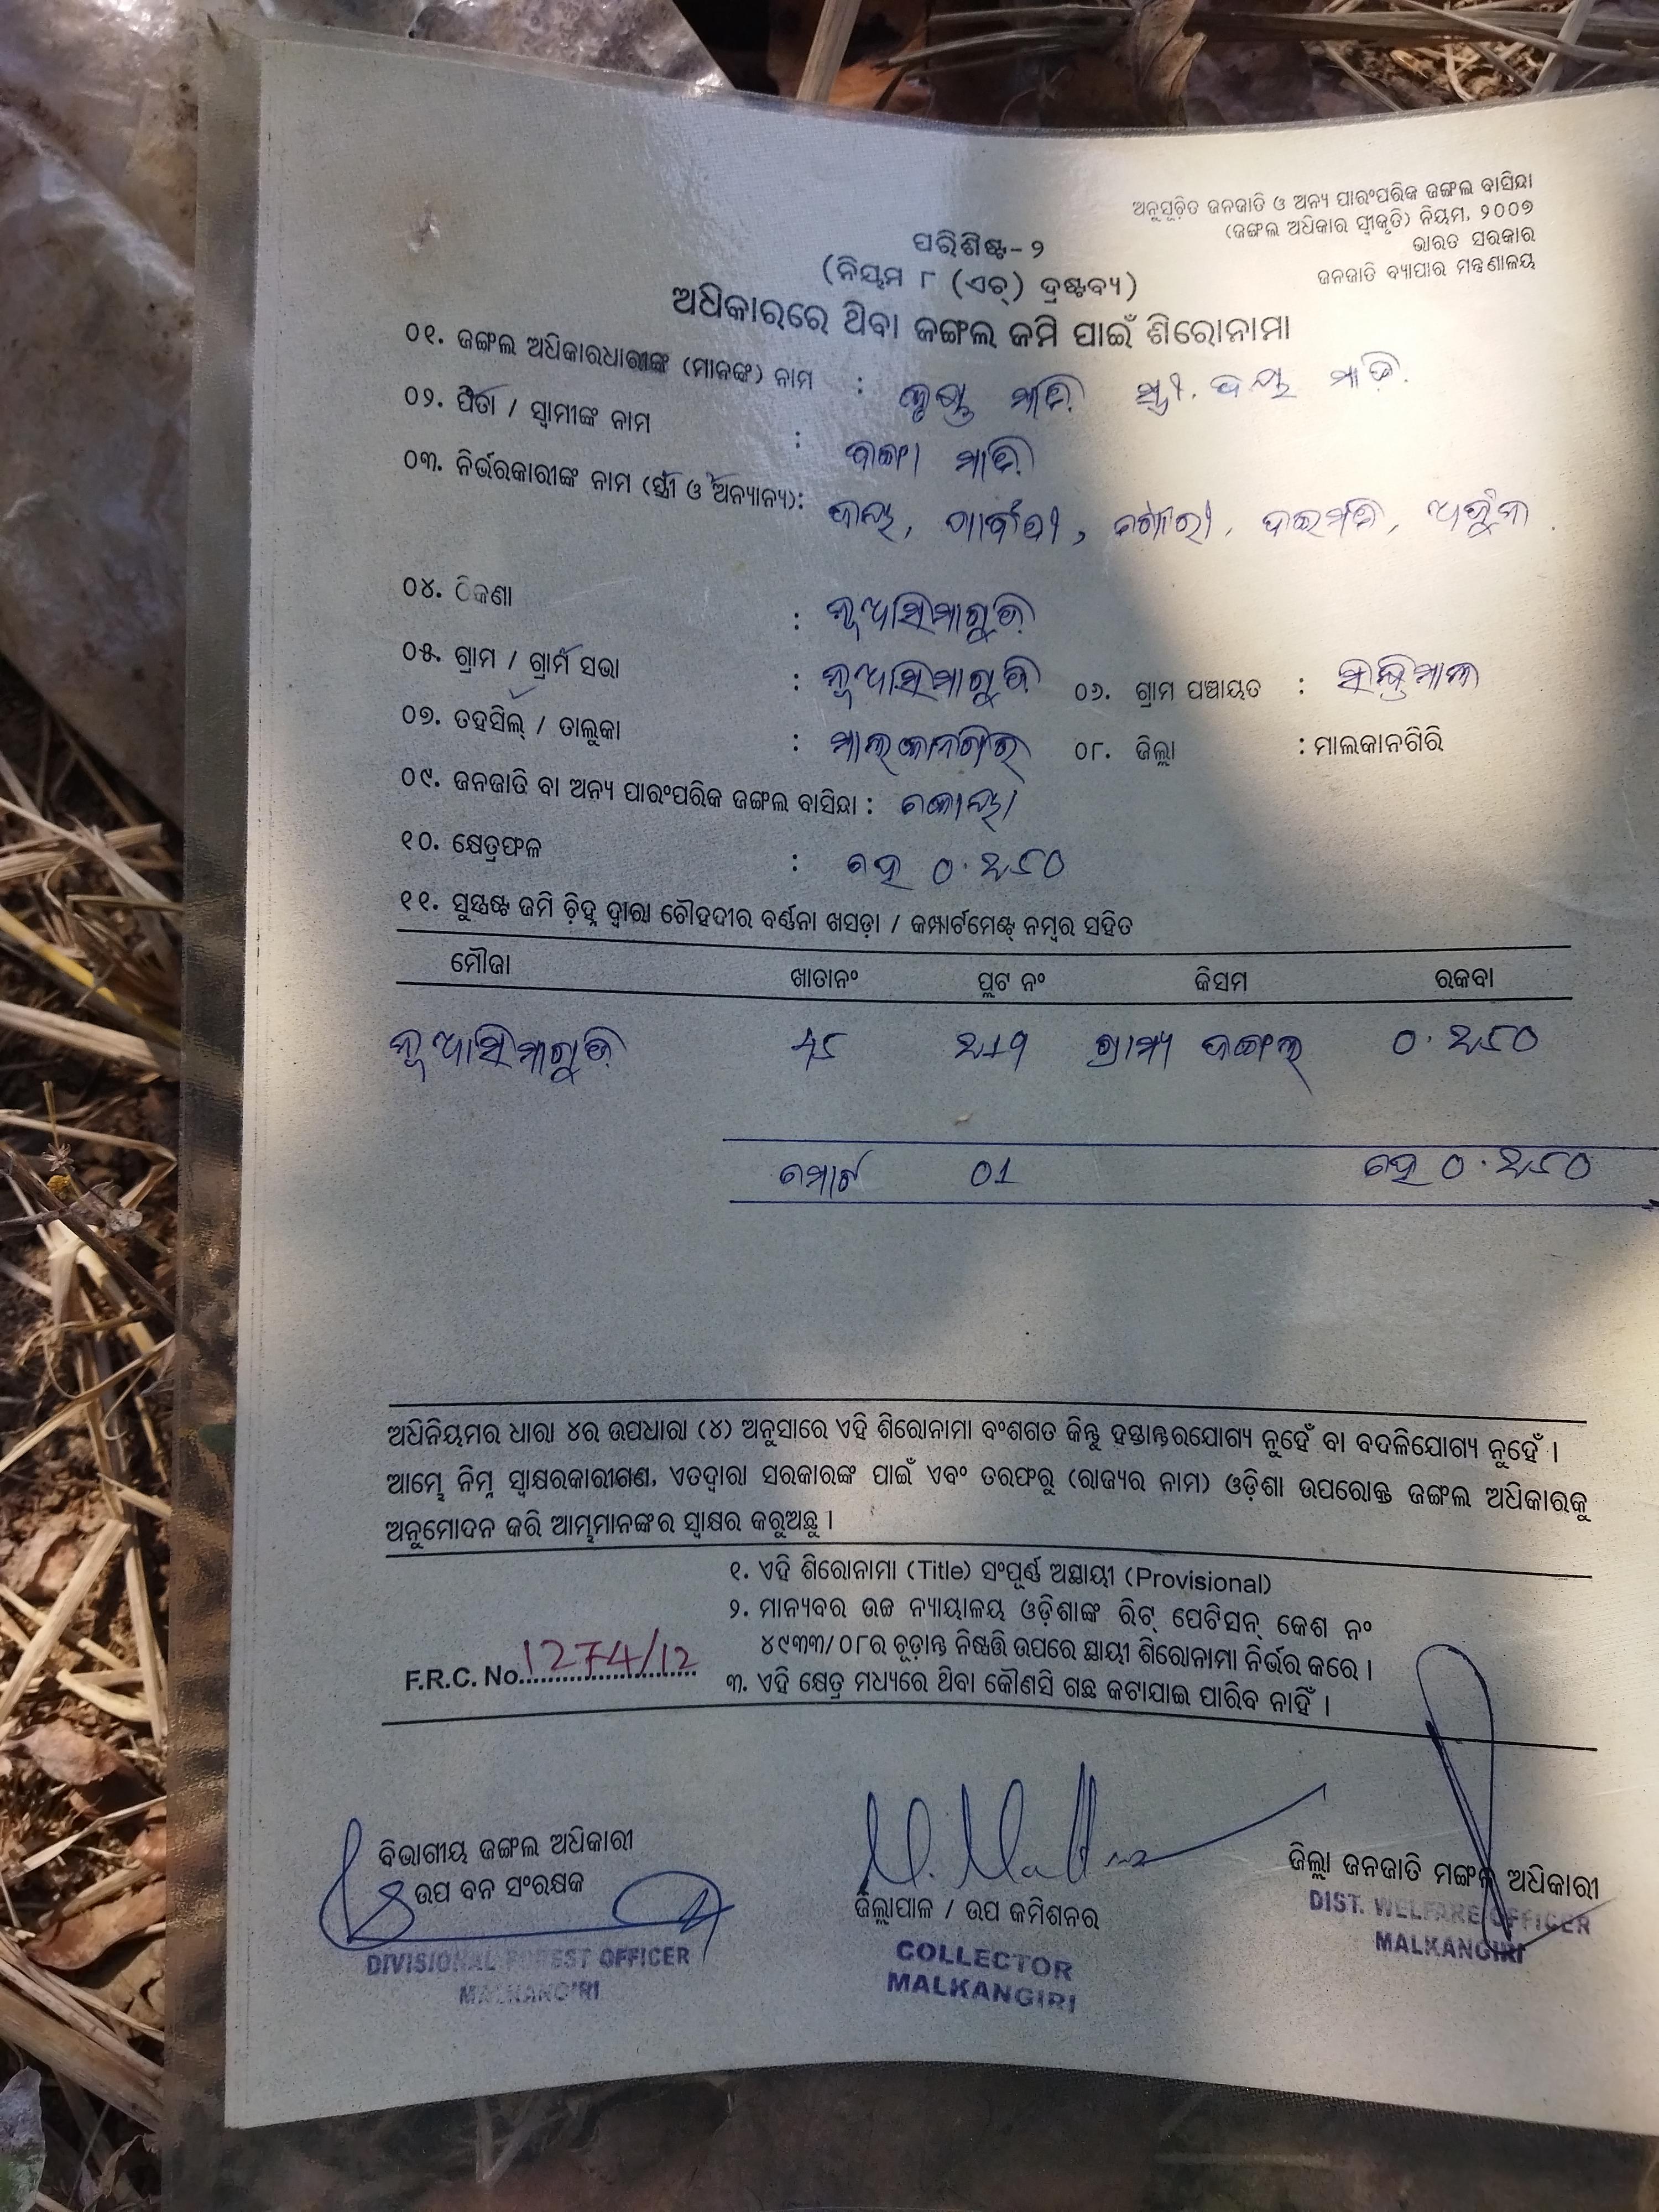 ଅନୁସୂଚିତ ଜନଜାତି ଓ ଅନ୍ୟ ପାରଂପରିକ ଜଙ୍ଗଲ ବାସିନ୍ଦା
(ଜଙ୍ଗଲ ଅଧିକାର ସ୍ୱୀକୃତି) ନିୟମ, ୨୦୦୭
ଭାରତ ସରକାର
ଜନଜାତି ବ୍ୟାପାର ମନ୍ତ୍ରଣାଳୟ
ପରିଶିଷ୍ଟ-୨
(ନିୟମ ୮ (ଏଚ୍) ଦ୍ରଷ୍ଟବ୍ୟ)
ଅଧିକାରରେ ଥିବା ଜଙ୍ଗଲ ଜମି ପାଇଁ ଶିରୋନାମା
୦୧. ଜଙ୍ଗଲ ଅଧିକାରଧାରୀଙ୍କ (ମାନଙ୍କ) ନାମ : ମାଡ଼ି ସ୍ତ୍ରୀ. ମାଡ଼ି.
୦୨. ପିତା / ସ୍ୱାମୀଙ୍କ ନାମ : ମାଡ଼ି
୦୩. ନିର୍ଭରକାରୀଙ୍କ ନାମ (ସ୍ତ୍ରୀ ଓ ଅନ୍ୟାନ୍ୟ): ପାର୍ବତୀ, ଅର୍ଜୁନ
୦୪. ଠିକଣା : ନୂଆସିମାଗୁଡ଼ି
୦୫. ଗ୍ରାମ / ଗ୍ରାମ ସଭା : ନୂଆସିମାଗୁଡ଼ି ୦୬. ଗ୍ରାମ ପଞ୍ଚାୟତ :
୦୭. ତହସିଲ୍ / ତାଲୁକା : ମାଲକାନଗିରି ୦୮. ଜିଲ୍ଲା : ମାଲକାନଗିରି
୦୯. ଜନଜାତି ବା ଅନ୍ୟ ପାରଂପରିକ ଜଙ୍ଗଲ ବାସିନ୍ଦା : କୋୟା
୧୦. କ୍ଷେତ୍ରଫଳ : ହେ ୦.୪୫୦
୧୧. ସୁସ୍ପଷ୍ଟ ଜମି ଚିହ୍ନ ଦ୍ୱାରା ଚୌହଦୀର ବର୍ଣ୍ଣନା ଖସଡ଼ା / କମ୍ପାର୍ଟମେଣ୍ଟ୍ ନମ୍ବର ସହିତ
ମୌଜା ଖାତାନଂ ପ୍ଲଟ ନଂ କିସମ ରକବା
ନୂଆସିମାଗୁଡ଼ି ଗ୍ରାମ୍ୟ ଜଙ୍ଗଲ ୦.୪୫୦
ମୋଟ ୦୧ ହେ ୦.୪୫୦
ଅଧିନିୟମର ଧାରା ୪ର ଉପଧାରା (୪) ଅନୁସାରେ ଏହି ଶିରୋନାମା ବଂଶଗତ କିନ୍ତୁ ହସ୍ତାନ୍ତରଯୋଗ୍ୟ ନୁହେଁ ବା ବଦଳିଯୋଗ୍ୟ ନୁହେଁ ।
ଆମ୍ଭେ ନିମ୍ନ ସ୍ୱାକ୍ଷରକାରୀଗଣ, ଏତଦ୍ୱାରା ସରକାରଙ୍କ ପାଇଁ ଏବଂ ତରଫରୁ (ରାଜ୍ୟର ନାମ) ଓଡ଼ିଶା ଉପରୋକ୍ତ ଜଙ୍ଗଲ ଅଧିକାରକୁ
ଅନୁମୋଦନ କରି ଆମ୍ଭମାନଙ୍କର ସ୍ୱାକ୍ଷର କରୁଅଛୁ ।
୧. ଏହି ଶିରୋନାମା (Title) ସଂପୂର୍ଣ୍ଣ ଅସ୍ଥାୟୀ (Provisional)
୨. ମାନ୍ୟବର ଉଚ୍ଚ ନ୍ୟାୟାଳୟ ଓଡ଼ିଶାଙ୍କ ରିଟ୍ ପେଟିସନ୍ କେଶ ନଂ
୪୯୩୩/୦୮ର ଚୂଡ଼ାନ୍ତ ନିଷ୍ପତ୍ତି ଉପରେ ସ୍ଥାୟୀ ଶିରୋନାମା ନିର୍ଭର କରେ ।
F.R.C. No. 1274/12
୩. ଏହି କ୍ଷେତ୍ର ମଧ୍ୟରେ ଥିବା କୌଣସି ଗଛ କଟାଯାଇ ପାରିବ ନାହିଁ ।
ବିଭାଗୀୟ ଜଙ୍ଗଲ ଅଧିକାରୀ
ଉପ ବନ ସଂରକ୍ଷକ
DIVISIONAL FOREST OFFICER
MALKANGIRI
ଜିଲ୍ଲାପାଳ / ଉପ କମିଶନର
COLLECTOR
MALKANGIRI
ଜିଲ୍ଲା ଜନଜାତି ମଙ୍ଗଳ ଅଧିକାରୀ
DIST. WELFARE OFFICER
MALKANGIRI